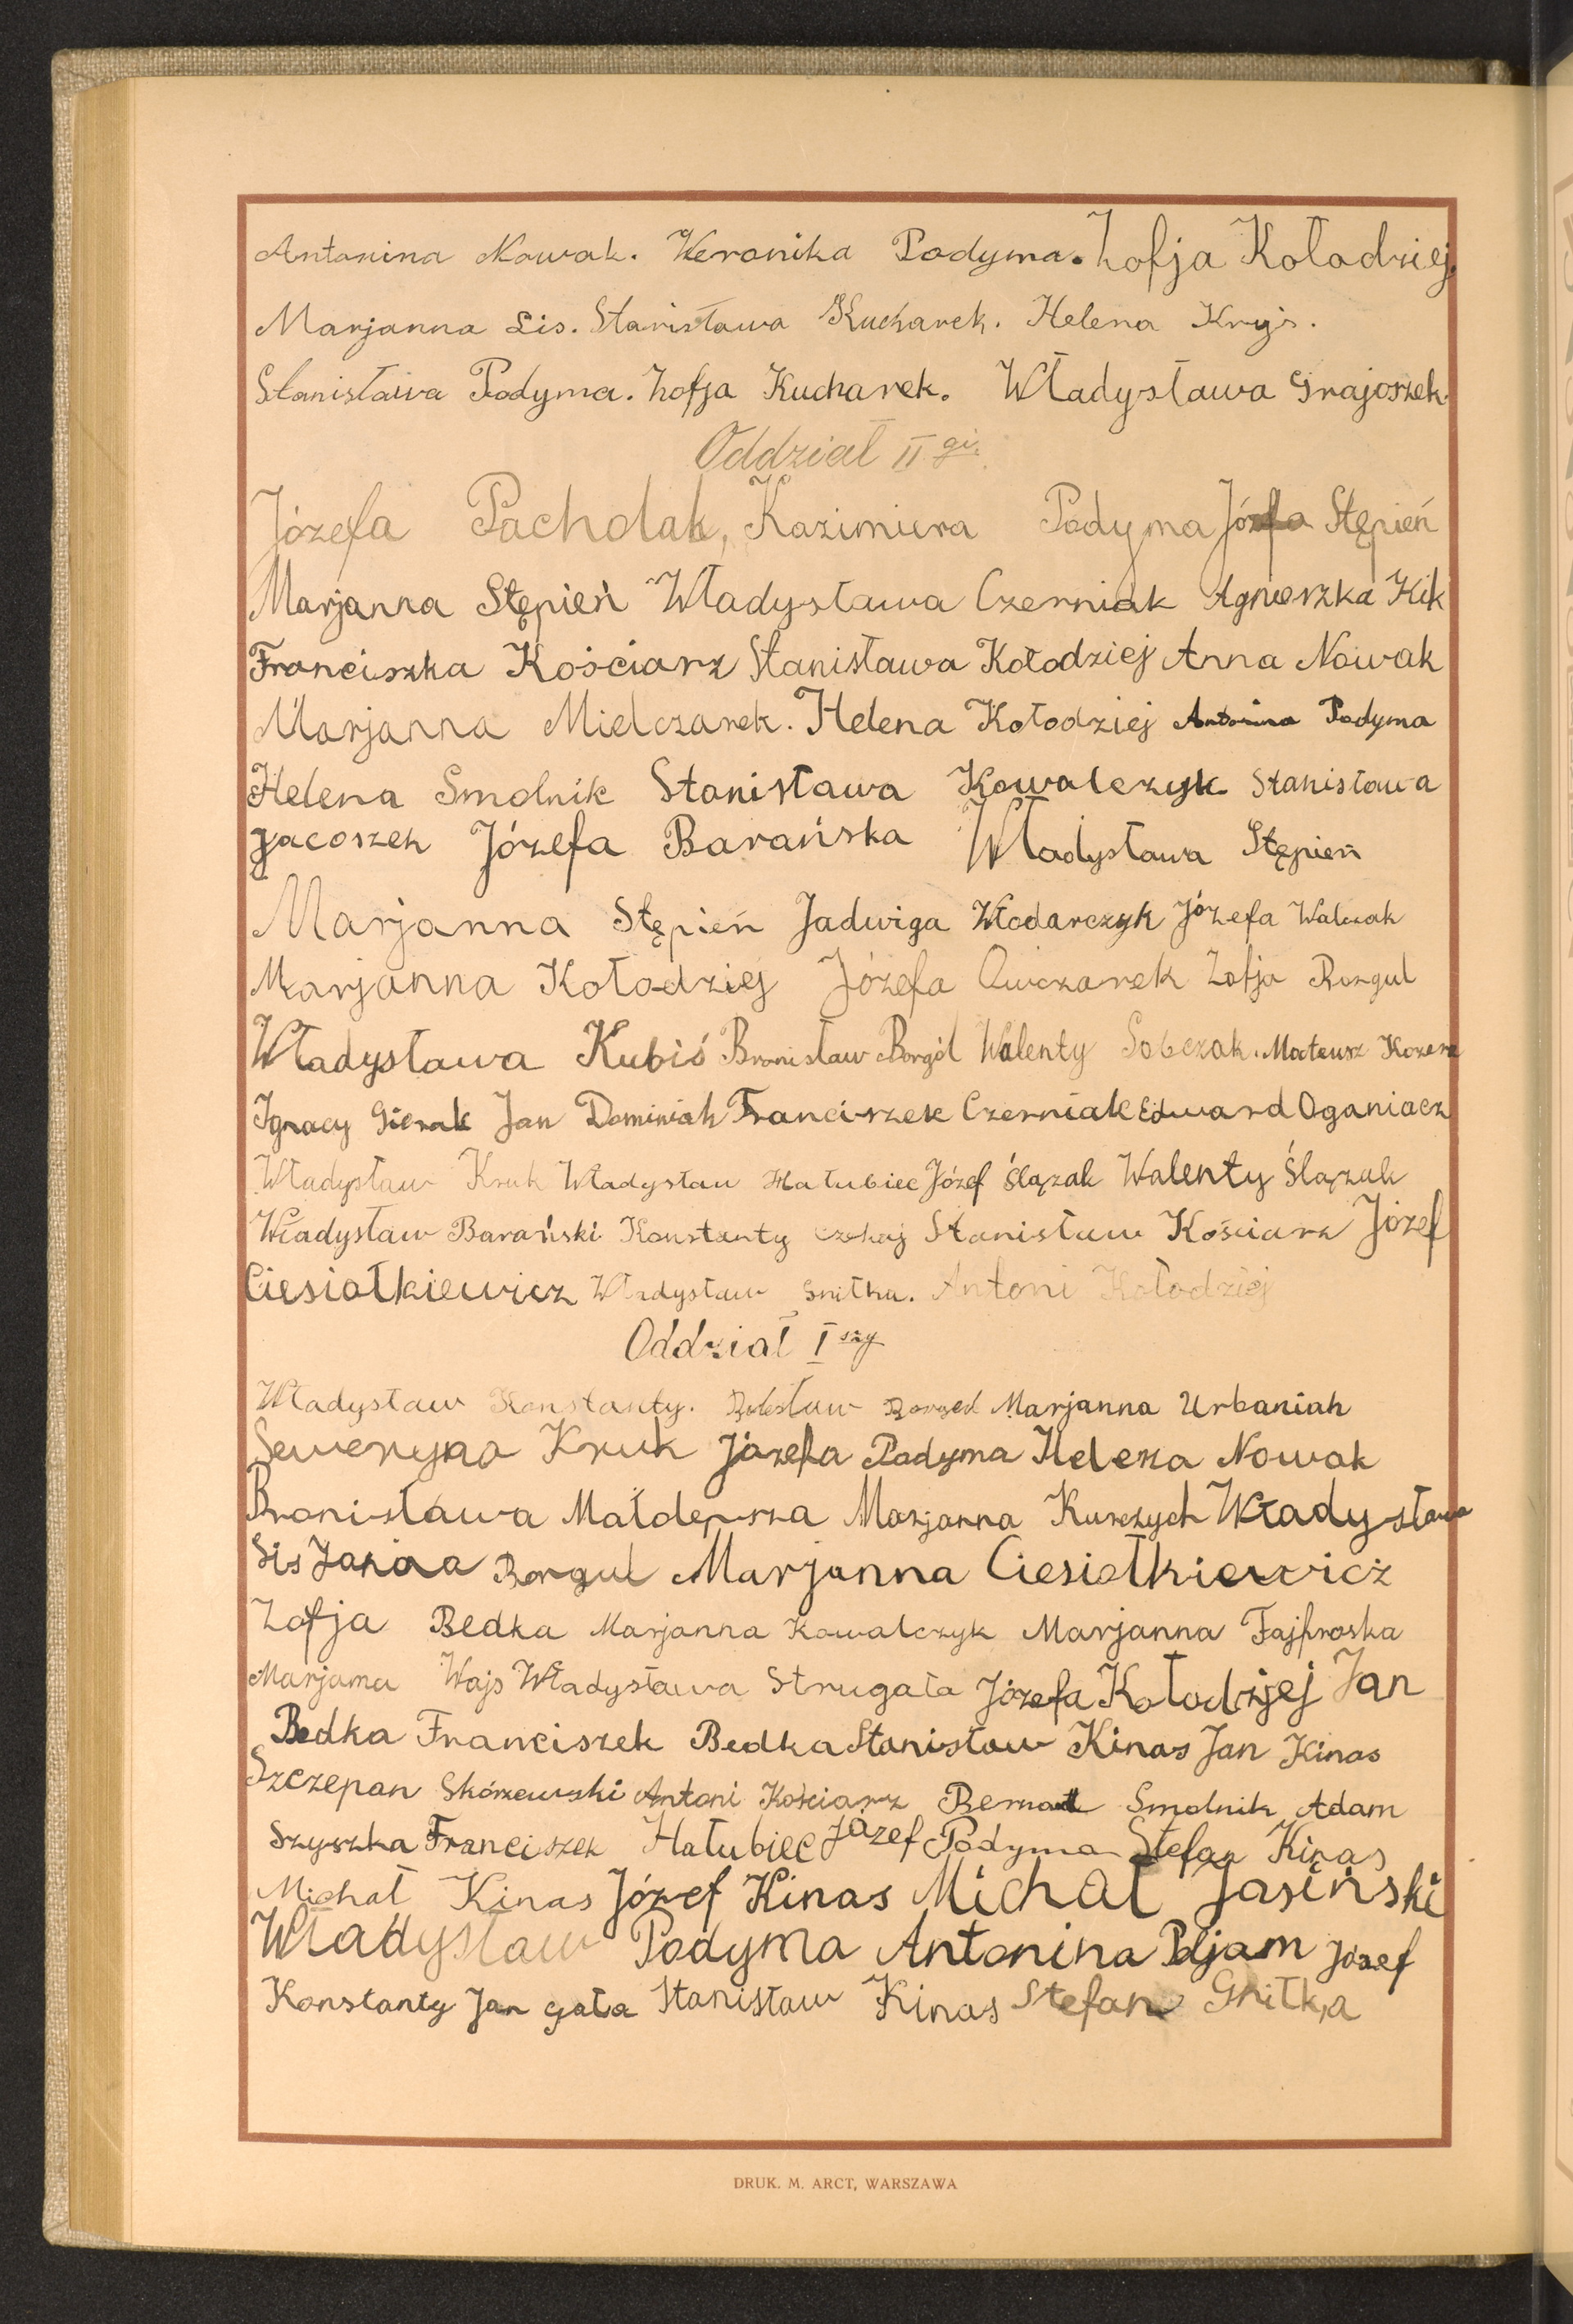 Antonina Nowak. Weronika Podyma. Zofja Kołodziej
Marjanna Lis. Stanisława Kucharek. Helena Kryś.
Stanisława Podyma. Zofja Kucharek. Władysława Grajoszek.
Oddział II gi.
Józefa Pacholak, Kazimiera Podyma Józefa Stępień
Marjanna Stępień Władysława Czerniak Agnieszka Kik
Franciszka Kościarz Stanisława Kołodziej Anna Nowak
Marjanna Mielczarek. Helena Kołodziej Antonina Podyma
Helena Smolnik Stanisława Kowalczyk Stanisława
Jacoszek Józefa Barańska Władysława Stępień
Marjanna Stępień Jadwiga Włodarczyk Józefa Walczak
Marjanna Kołodziej Józefa Owczarek Zofja Rozgul
Władysława Kubiś Bronisław Borgól Walenty Sobczak. Mateusz Kozera
Ignacy Gierak Jan Dominiak Franciszek Czerniak Edward Oganiacz
Władysław Kruk Władysław Hałubiec Józef Ślązak Walenty Ślązak
Władysław Barański Konstanty Czekaj Stanisław Kościarz Józef
Ciesiołkiewicz Władysław Gniłka. Antoni Kołodziej
Oddział I szy
Władysław Konstanty. Bolesław Marjanna Urbaniak
Seweryna Kruk Józefa Podyma Helena Nowak
Bronisława Małdepsza Marjanna Kurczych Władysława
Lis Janina Borgul Marjanna Ciesiołkiewicz
Zofja Bedka Marjanna Kowalczyk Marjanna Fajfroska
Marjanna Wajs Władysława Strugała Józefa Kołodziej Jan
Bedka Franciszek Bedka Stanisław Kinas Jan Kinas
Szczepan Skórzewski Antoni Kościarz Bernad Smolnik Adam
Szyszka Franciszek Hałubiec Józef Podyma Stefan Kinas
Michał Kinas Józef Kinas Michał Jasiński
Władysław Podyma Antonina Józef
Konstanty Jan Gała Stanisław Kinas Stefan Gniłka
DRUK. M. ARCT, WARSZAWA